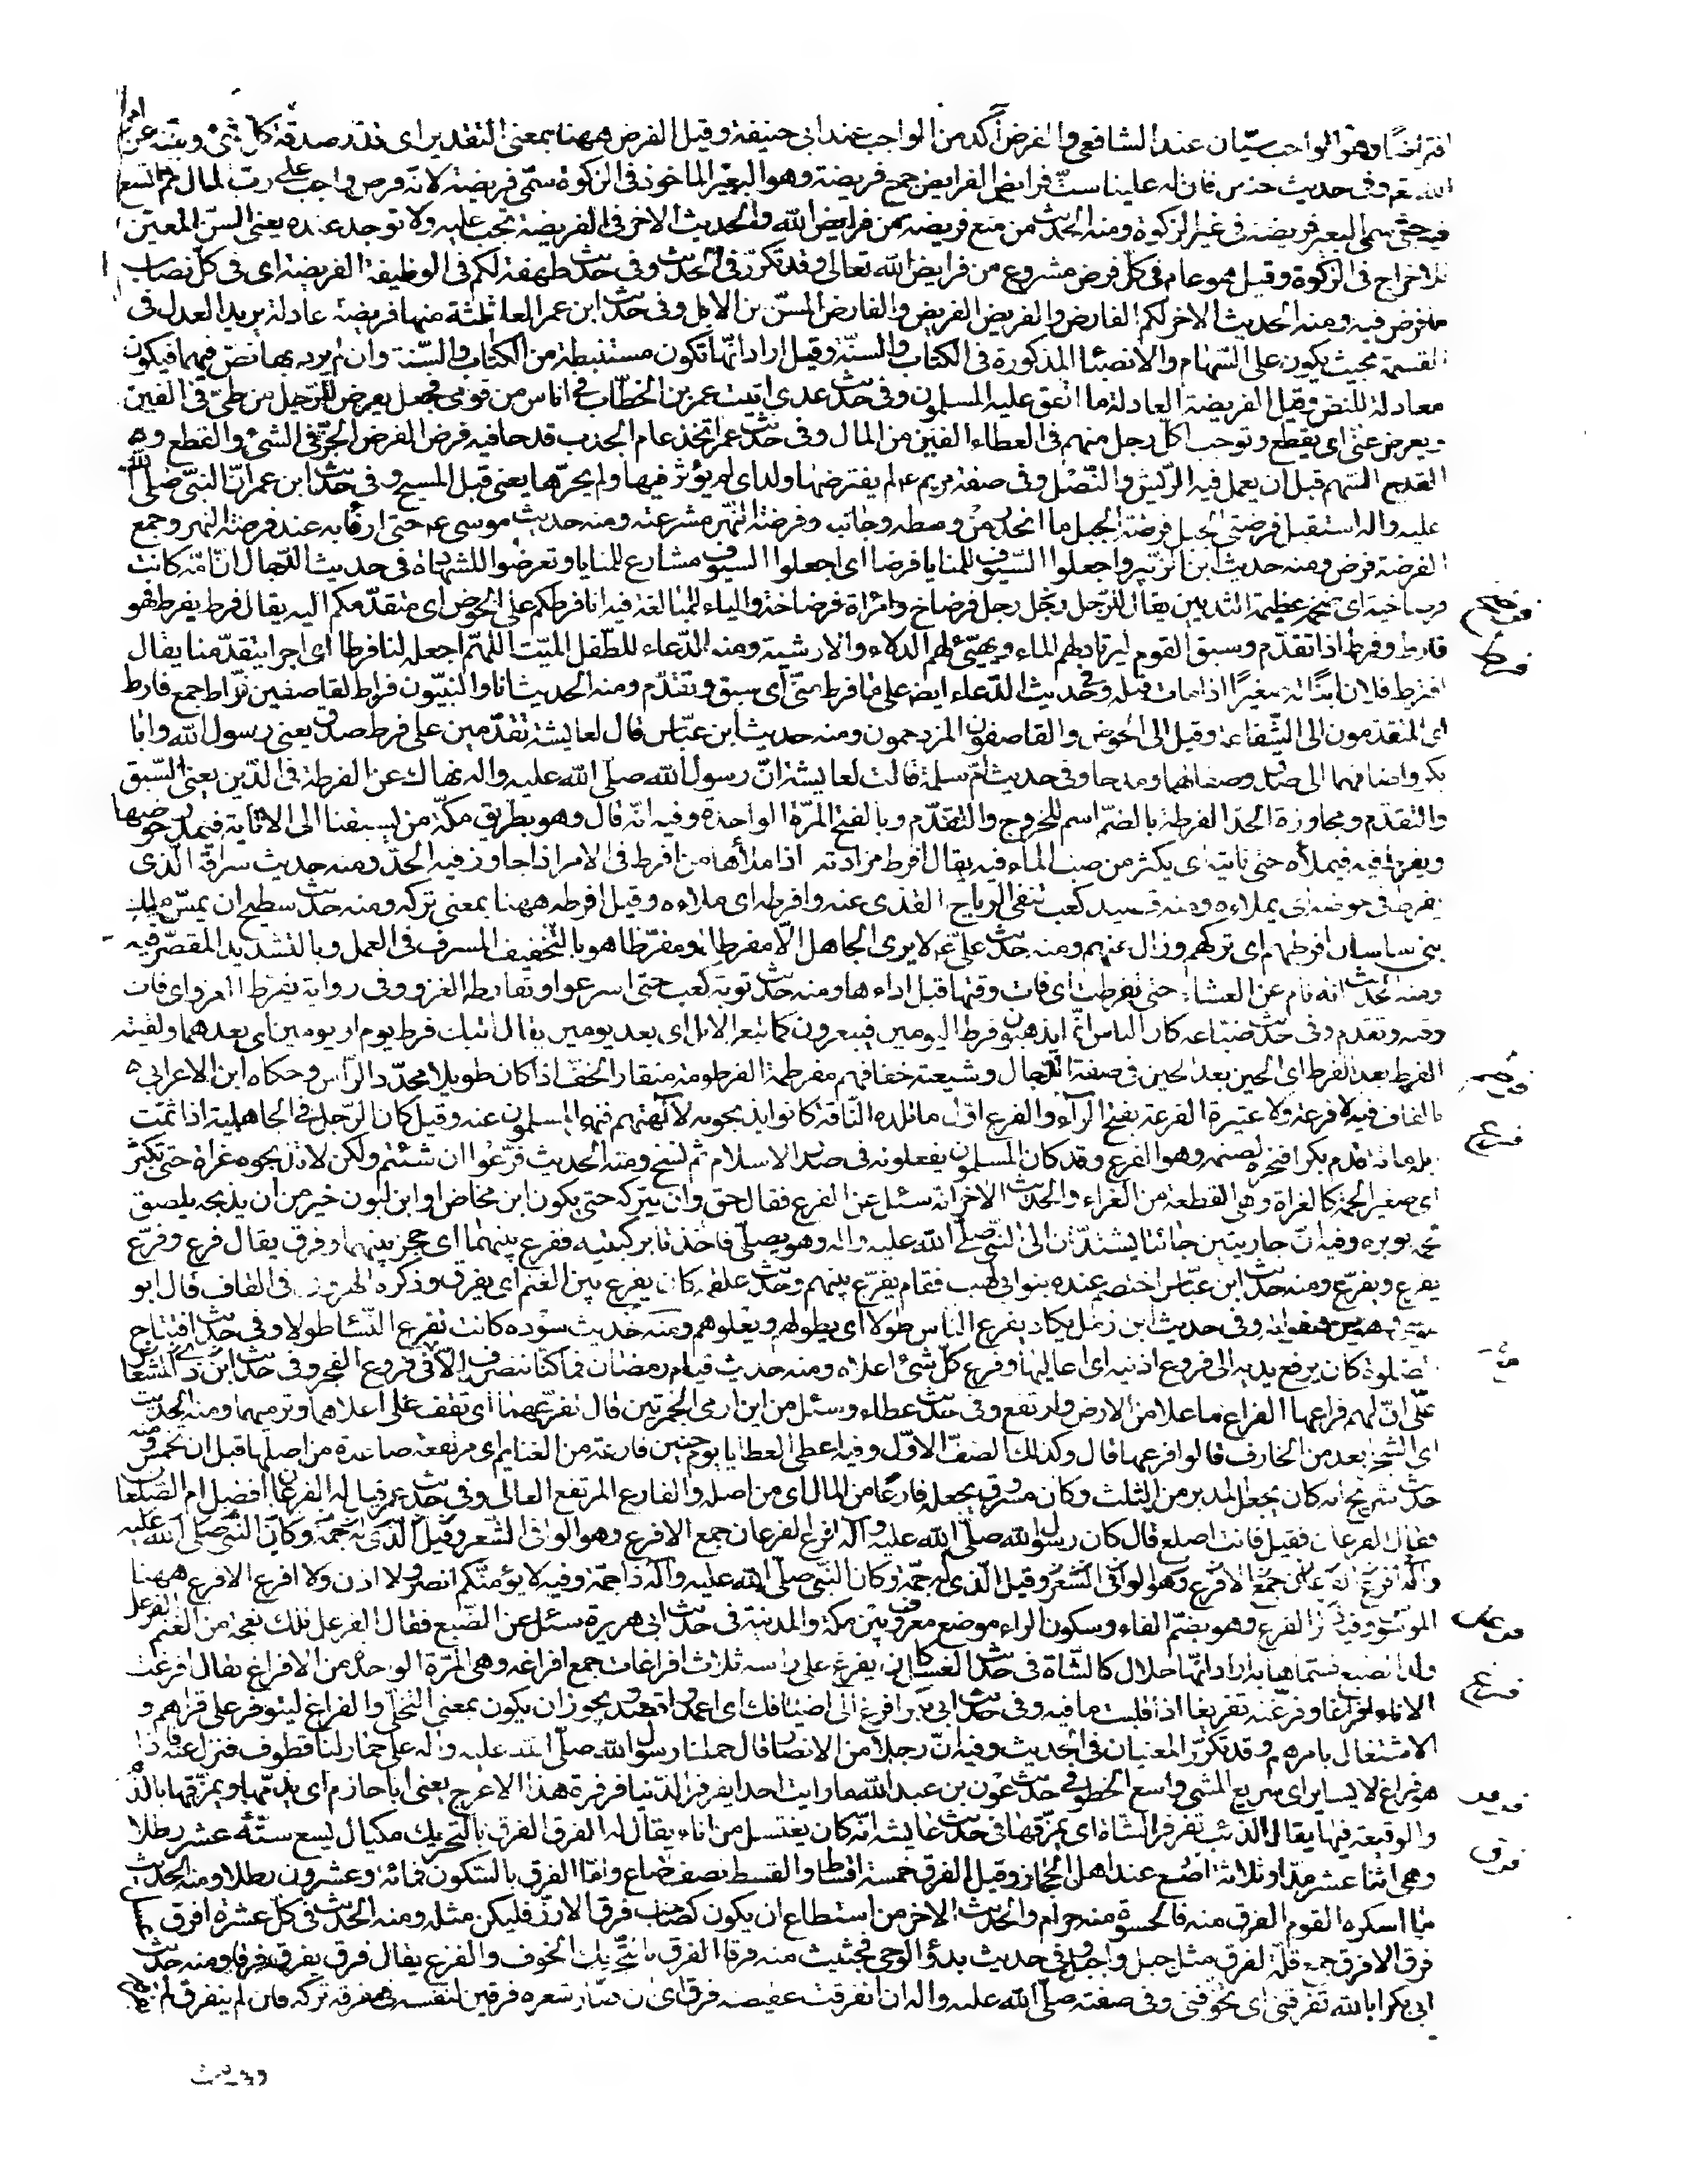 افتراضا وهو والواجب سيّان عند الشافعي والفرض آكد من الواجب عند ابي حنيفة وقيل الفرض ههنا بمعنى التقدير اى قدّر صدقة كل شئ وبيّنه عن امر
الله تعم وفى حديث حنين فان له علينا ستّ فرايض الفرايض جمع فريضة وهو البعير الماخوذ فى الزكوة سمّى فريضة لانّه فرض واجب على ربّ المال ثم اتسع
فيه حتى سمى البعير فريضة فى غير الزكوة ومنه الحديث من منع فريضة من فرايض الله والحديث الاخر فى الفريضة تجب عليه ولا توجد عنده يعنى السنّ المعيّن
للاخراج فى الزكوة وقيل هو عام فى كل فرض مشروع من فرايض الله تعالى وقد تكرّر فى الحديث وفى حديث طهفة لكم فى الوظيفة الفريضة اى فى كل نصاب
ما فرض فيه ومنه الحديث الاخر لكم الفارض والفريض الفريض والفارض المسنّ من الابل وفى حديث ابن عمر العلم ثلثة منها فريضة عادلة يريد العدل فى
القسمة بحيث يكون على السّهام والانصباء المذكورة فى الكتاب والسنّة وقيل اراد انّها تكون مستنبطة من الكتاب والسّنة وان لم يرد بها نصّ فيهما فيكون
معادلة للنصّ وقيل الفريضة العادلة ما اتفق عليه المسلمون وفى حديث عدى اتيت عمر بن الخطّاب فى اناس من قومى فجعل يفرض للرّجل من طىّ فى الفين
ويعرض عنّى اى يقطع ويوجب لكل رجل منهم فى العطاء الفين من المال وفى حديث عمر اتخذ عام الجدب قدحا فيه فرض الفرض الحزّ فى الشئ والقطع و
القدح السّهم قبل ان يعمل فيه الرّيش والنّصل وفى صفة مريم ع لم يفترضها ولد اى لم يؤثّر فيها ولم يحزّها يعنى قبل المسيح وفى حديث ابن عمر انّ النبىّ صلى الله
عليه واله استقبل فرضتى الجبل فرضة الجبل ما انحدر من وسطه وجانبه وفرضة النّهر مشرعته ومنه حديث موسى ع حتى ارفأ به عند فرضة النهر وجمع
الفرضة فرض ومنه حديث ابن الزّبير واجعلوا السّيوف للمنايا فرضا اى اجعلوا السيوف مشارع للمنايا وتعرضوا للشهادة فى حديث الدّجال انّ امّه كانت
فرضاخية اى ضخمة عظيمة الثديين يقال للرّجل رجل فرضاخ وامراة فرضاخة والياء للمبالغة فيه انا فرطكم على الحوض اى متقدّمكم اليه يقال فرط يفرط فهو
فرضخ
فارط وفرط اذا تقدّم وسبق القوم ليرتاد لهم الماء ويهيّئ لهم الدلاء والارشية ومنه الدّعاء للطّفل الميّت اللهمّ اجعله لنا فرطا اى اجرا يتقدّمنا يقال
فرط
افترط فلان ابنا له صغيرا اذا مات قبله وفى حديث الدّعاء ايضا على ما فرط منّى اى سبق وتقدّم ومنه الحديث انا والنبيّون فراط لقاصفين فرّاط جمع فارط
اى المتقدّمون الى الشّفاعة وقيل الى الحوض والقاصفون المزدحمون ومنه حديث ابن عبّاس قال لعايشة تقدّمين على فرط صدق يعنى رسول الله وابا
بكر واضافهما الى صدق وصفا لهما ومدحا وفى حديث امّ سلمة قالت لعايشة انّ رسول الله صلّى الله عليه واله نهاك عن الفرطة فى الدّين يعنى السّبق
والتقدّم ومجاوزة الحدّ الفرطة بالضمّ اسم للخروج والتقدّم وبالفتح المرّة الواحدة وفيه انّه قال وهو بطريق مكّة من يسبقنا الى الاثاية فيمدر حوضها
ويفرط فيه فيملأه حتى ناتيه اى يكثر من صبّ الماء فيه يقال افرط مزادته اذا ملأها من افرط فى الامر اذا جاوز فيه الحدّ ومنه حديث سراقة الّذى
يفرط فى حوضه اى يملاءه ومنه قصيد كعب تنفى الرياح القذى عنه وافرطه اى ملاءه وقيل افرطه ههنا بمعنى تركه ومنه حديث سطيح ان يمس ملك
بنى ساسان افرطهم اى تركهم وزال عنهم ومنه حديث على ع لا يرى الجاهل الّا مفرطا او مفرّطا هو بالتخفيف المسرف فى العمل وبالتشديد المقصّر فيه
ومنه الحديث انه نام عن العشاء حتى تفرطت اى فات وقتها قبل اداءها ومنه حديث توبة كعب حتى اسرعوا وتفارط الغزو وفى رواية تفرط الغزو اى فات
وقته وتقدم وفى حديث ضباعة كان الناس انّما يذهبون فرط اليومين فيبعرون كما تبعر الابل اى بعد يومين يقال اتيتك فرط يوم او يومين اى بعدهما ولقيته
الفرط بعد الفرط اى الحين بعد الحين فى صفة الدّجال وشيعته خفافهم مفرطمة الفرطومة منقار الخفّ اذا كان طويلا محدّد الرّاس وحكاه ابن الاعرابى
بالقاف فيه لا فرعة ولا عتيرة الفرعة بفتح الرّاء والفرع اوّل ما تلده النّاقة كانوا يذبحونه لآلهتهم فنهى المسلمون عنه وقيل كان الرّجل فى الجاهلية اذا تمّت
فرع
ابله مائة قدّم بكرا فنحره لصنمه وهو الفرع وقد كان المسلمون يفعلونه فى صدر الاسلام ثم نسخ ومنه الحديث فرّعوا ان شئتم ولكن لا تذبحوه غراة حتى يكبر
اى صغير الحمه كالغراة وهى القطعة من الغراء والحديث الاخر انه سئل عن الفرع فقال حق وان يتركه حتى يكون ابن مخاض او ابن لبون خير من ان يذبحه يلصق
لحمه بوبره وفيه انّ جاريتين جائتا يشتدّان الى النّبى صلّى الله عليه واله وهو يصلّى فاخذتا بركبتيه ففرع بينهما اى حجز بينهما وفرق يقال فرع وفرّع
يفرع ويفرّع ومنه حديث ابن عبّاس اختصم عنده بنو ابى لهب فقام يفرّع بينهم وحديث علقمة كان يفرع بين الغنم اى يفرق وذكره الهروى فى القاف قال ابو
وفى حديث ابن زمل يكاد يفرع الناس طولا اى يطولهم ويعلوهم ومنه حديث سوده كانت تفرع النّساء طولا وفى حديث افتتاح
الصلوة كان يرفع يديه الى فروع اذنيه اى اعاليها وفرع كلّ شئ اعلاه ومنه حديث قيام رمضان فما كنّا ننصرف الّا فى فروع الفجر وفى حديث ابن ذى المشعار
على انّ لهم فراعها الفراع ما علا من الارض وارتفع وفى حديث عطاء وسئل من اين ارمى الجمرتين قال تفرعهما اى تقف على اعلاهما وترميهما ومنه الحديث
اى الشجر ابعد من الخارف قالوا فرعها قال وكذلك الصفّ الاوّل وفيه اعطى العطايا يوم حنين فارعة من الغنايم اى مرتفعة صاعدة من اصلها قبل ان تخمس ومنه
حديث شريح انه كان يجعل المدبر من الثلث وكان مسروق يجعله فارعا من المال اى من اصله والفارع المرتفع العالى وفى حديث عمر قيل له الفرعان افضل ام الصّلعان
فقال الفرعان فقيل فانت اصلع قال كان رسول الله صلّى الله عليه وآله افرع الفرعان جمع الافرع وهو الوافى الشّعر وقيل الّذى له جمّة وكان النّبى صلّى الله عليه
وآله افرع جمع الافرع وهو الوافى الشّعر وقيل الّذى له جمّة وكان النّبى صلّى الله عليه وآله ذا جمّة وفيه لا يؤمنّكم انصر ولا ازن ولا افرع الافرع ههنا
الموسوس وفيه ذكر الفرع وهو بضمّ الفاء وسكون الراء موضع معروف بين مكة والمدينة فى حديث ابى هريرة سئل عن الضّبع فقال الفرعل تلك نعجة من الغنم الفرعل
فرعل
ولد الضبع فسمّاها به اراد انّها حلال كالشاة فى حديث الغسل كان يفرغ على راسه ثلاث افراغات جمع افراغة وهى المرّة الواحدة من الافراغ يقال افرغت
فرغ
الاناء افراغا وفرّغته تفريغا اذا قلبت ما فيه وفى حديث ابى بكر افرغ الى اضيافك اى اعمد واقصد ويجوز ان يكون بمعنى التخلّى والفراغ ليتوفّر على قراهم و
الاشتغال بامرهم وقد تكرّر المعنيان فى الحديث وفيه انّ رجلا من الانصار قال حملنا رسول الله صلّى الله عليه واله على حمار لنا قطوف فنزل عنه فاذا
هو فراغ لا يساير اى سريع المشى واسع الخطو فى حديث عون بن عبد الله ما رايت احدا يفرفر الدّنيا فرفرة هذا الاعرج يعنى ابا حازم اى يذمّها ويمزّقها بالذّم
فرفر
والوقيعة فيها يقال الذئب يفرفر الشاة اى يمزّقها فى حديث عايشة انّه كان يغتسل من اناء يقال له الفرق الفرق بالتحريك مكيال يسع ستّة عشر رطلا
فرق
وهى اثنا عشر مدّا او ثلاثة اصع عند اهل الحجاز وقيل الفرق خمسة اقساط والقسط نصف صاع وامّا الفرق بالسكون فمائة وعشرون رطلا ومنه الحديث
ما اسكر القوم الفرق منه فالحسوة منه حرام والحديث الاخر من استطاع ان يكون كصاحب فرق الارزّ فليكن مثله ومنه الحديث فى كل عشرة افرق
فرق الافرق جمع قلّة لفرق مثل جبل واجبل وفى حديث بدؤ الوحى فجئثت منه فرقا الفرق بالتّحريك الخوف والفزع يقال فرق يفرق فرقا ومنه حديث
ابى بكر ابالله تفرقنى اى تخوّفنى وفى صفته صلّى الله عليه واله ان انفرقت عقيصته فرق اى ان صار شعره فرقين لنفسه فى مفرقه تركه وان لم ينفرق لم